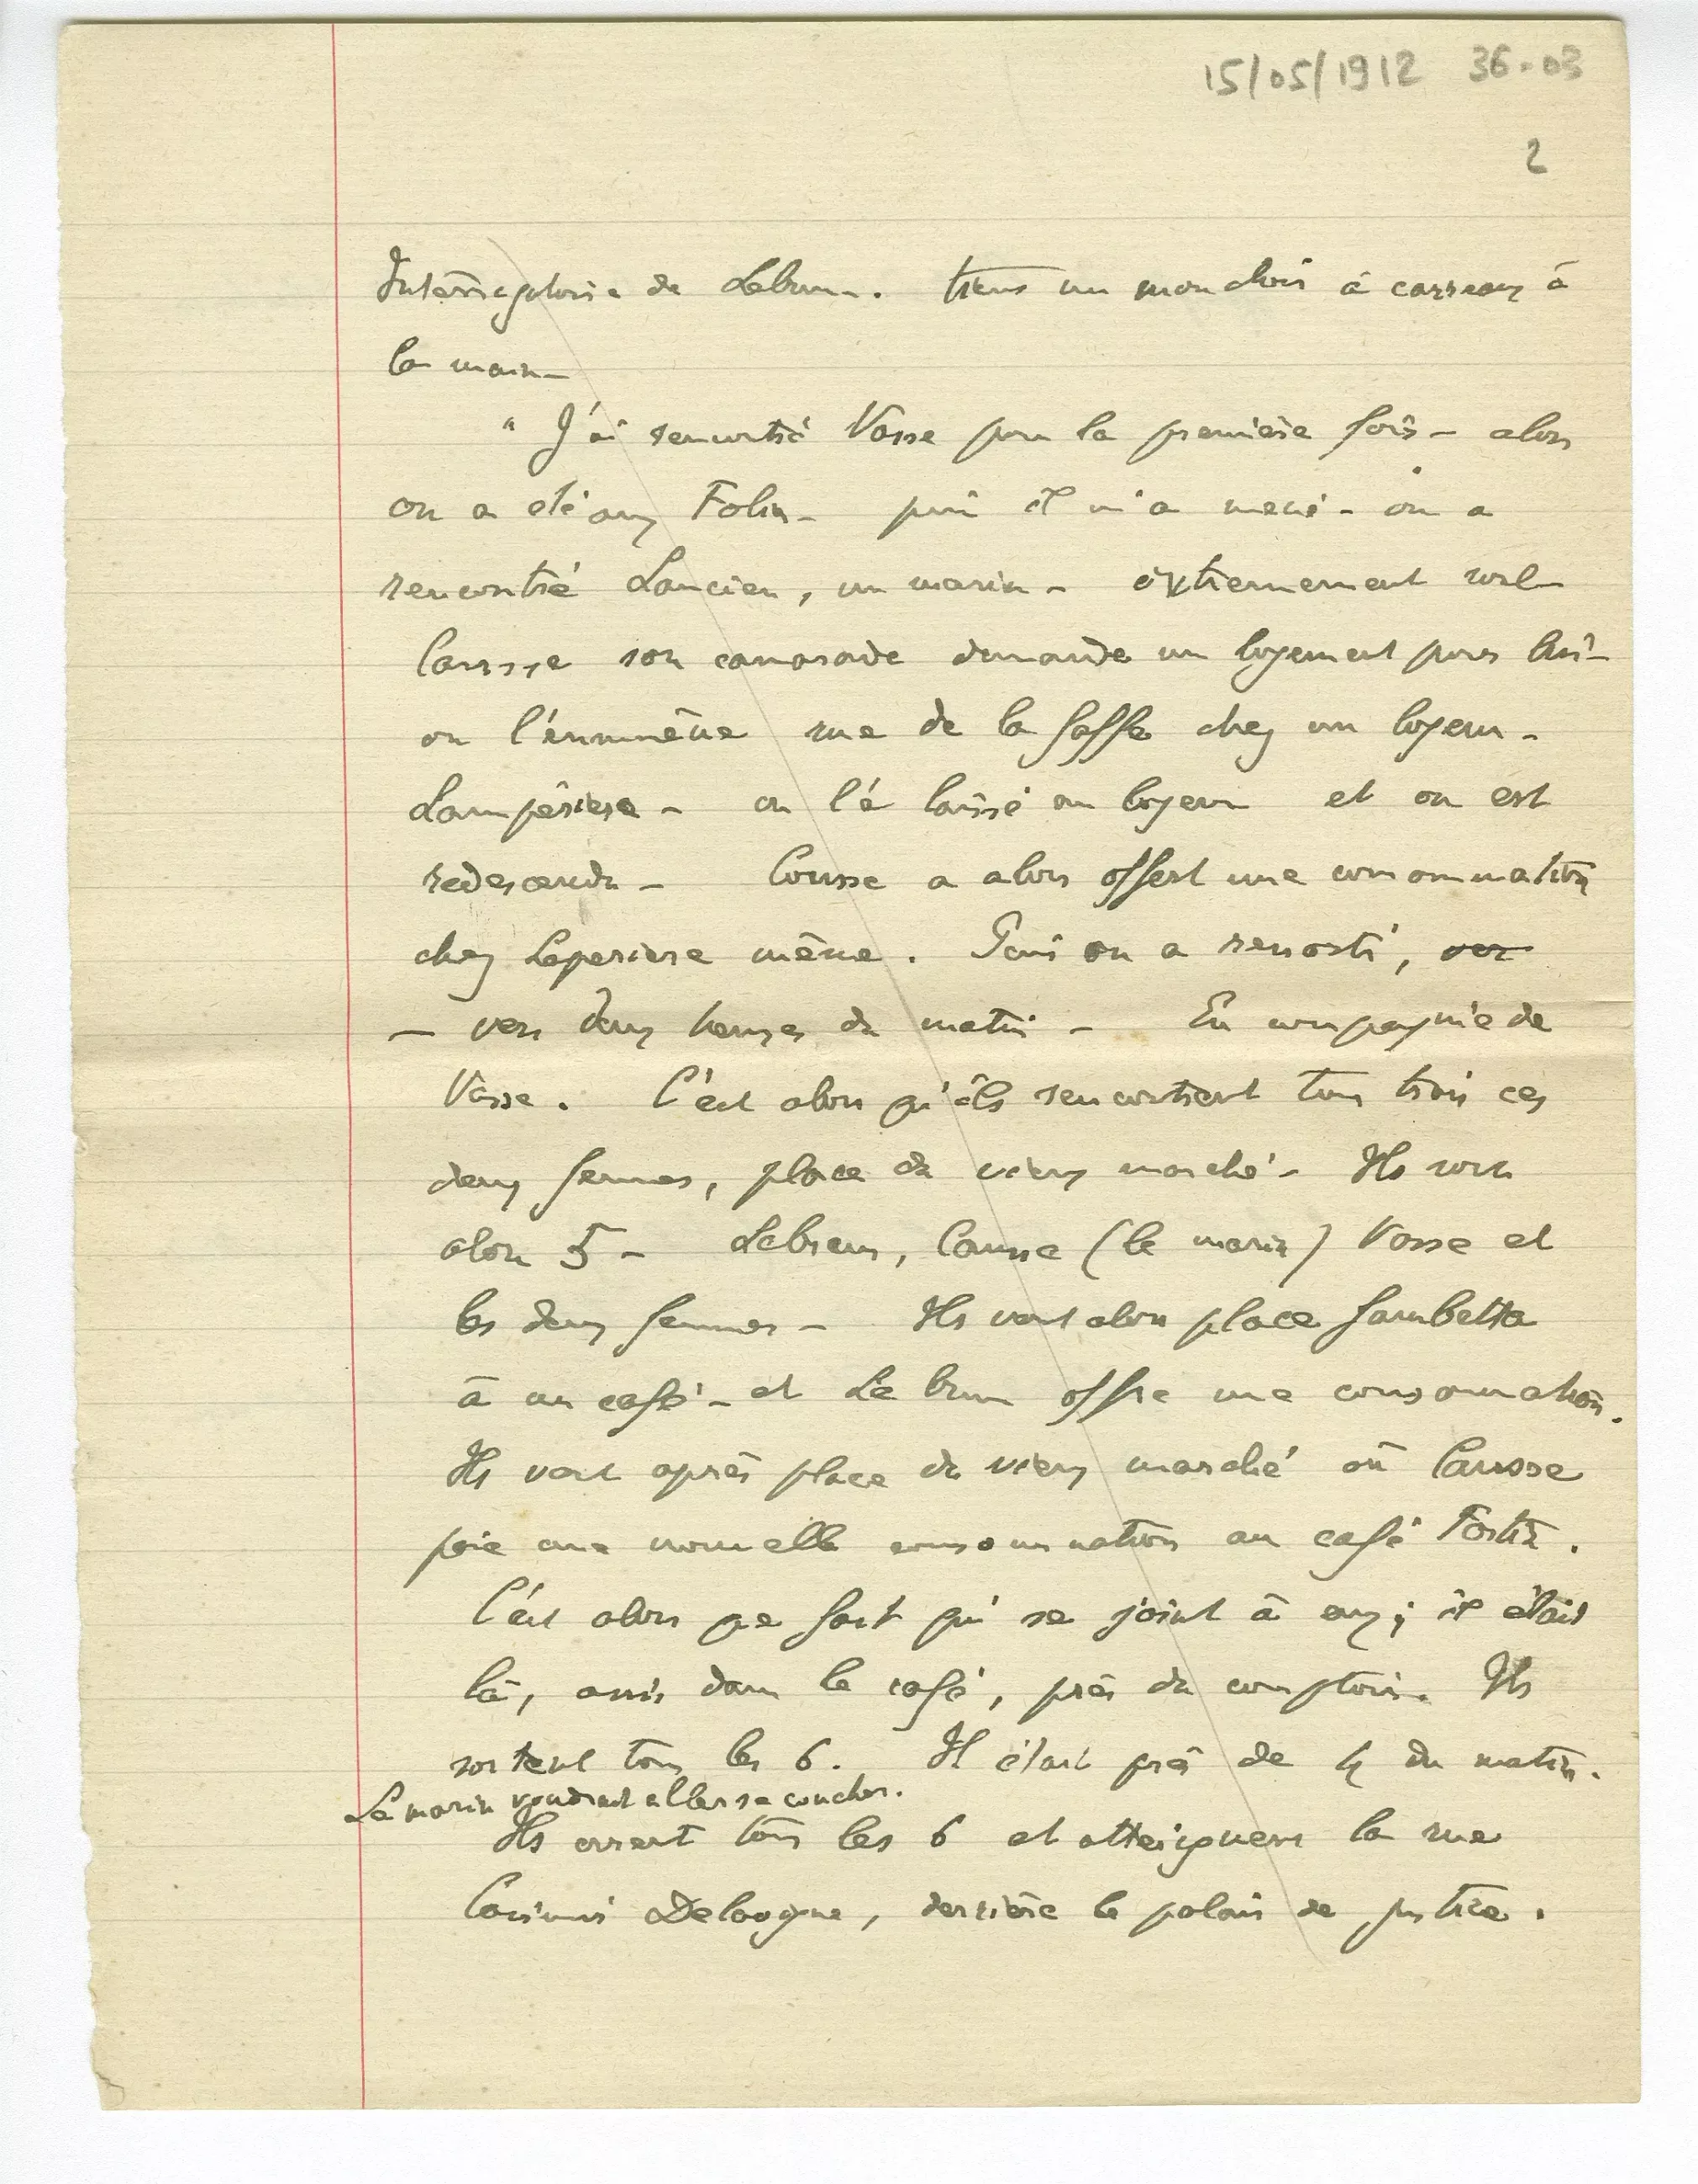 15/05/1912 36-03
2
Interrogatoire de Lebrun. tiens un mouchoir à carreaux à
la main –
" J'ai rencontré Vasse pour la première fois – alors
on a été aux Folies – puis il m'a mené – on a
rencontré Lancien, un marin – extrêmement
Causse son camarade demande un logement pour lui –
on l'emmène rue de la Gaffe chez un logeur –
Lampérière – on l'a laissé au logeur et on est
redescendu – Causse a alors offert une consommation
chez Leperiere même. Puis on a ressorti, ver
– vers deux heures du matin – En compagnie de
Vasse. C'est alors qu'ils rencontrent tous trois ces
deux femmes, place du vieux marché – Ils sont
alors 5 – Lebrun, Causse (le marin) Vasse et
les deux femmes – Ils vont alors place Gambetta
à un café – et Lebrun offre une consommation.
Ils vont après place du vieux marché où Causse
paie une nouvelle consommation au café Fortin.
C'est alors que Gort qui se joint à eux ; il était
là, assis dans le café, près du comptoir. Ils
sortent tous les 6. Il était près de 4 du matin.
Le marin voudrait aller se coucher.
Ils errent tous les 6 et atteignent la rue
Casimir Delavigne, derrière le palais de justice.